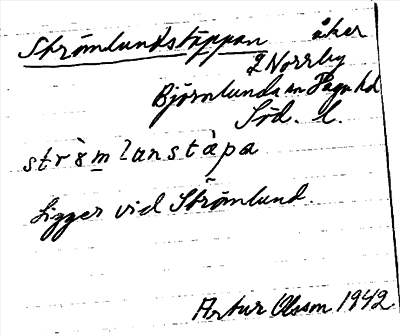 Strömlundstäppan åker
2 Norrby
Björnlunda sn Daga hd
Söd. l.
str&#x300;8m̲lanstàpa
Ligger vid Strömlund.
Artur Olsson 1942